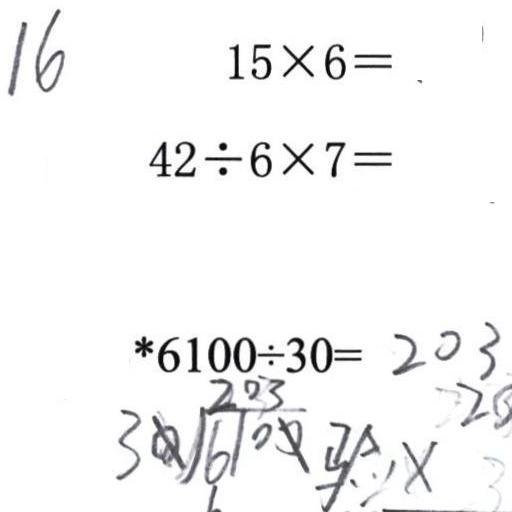 16
15×6=
42÷6×7=
*6100÷30=203
203
30)6100 验: ×
6